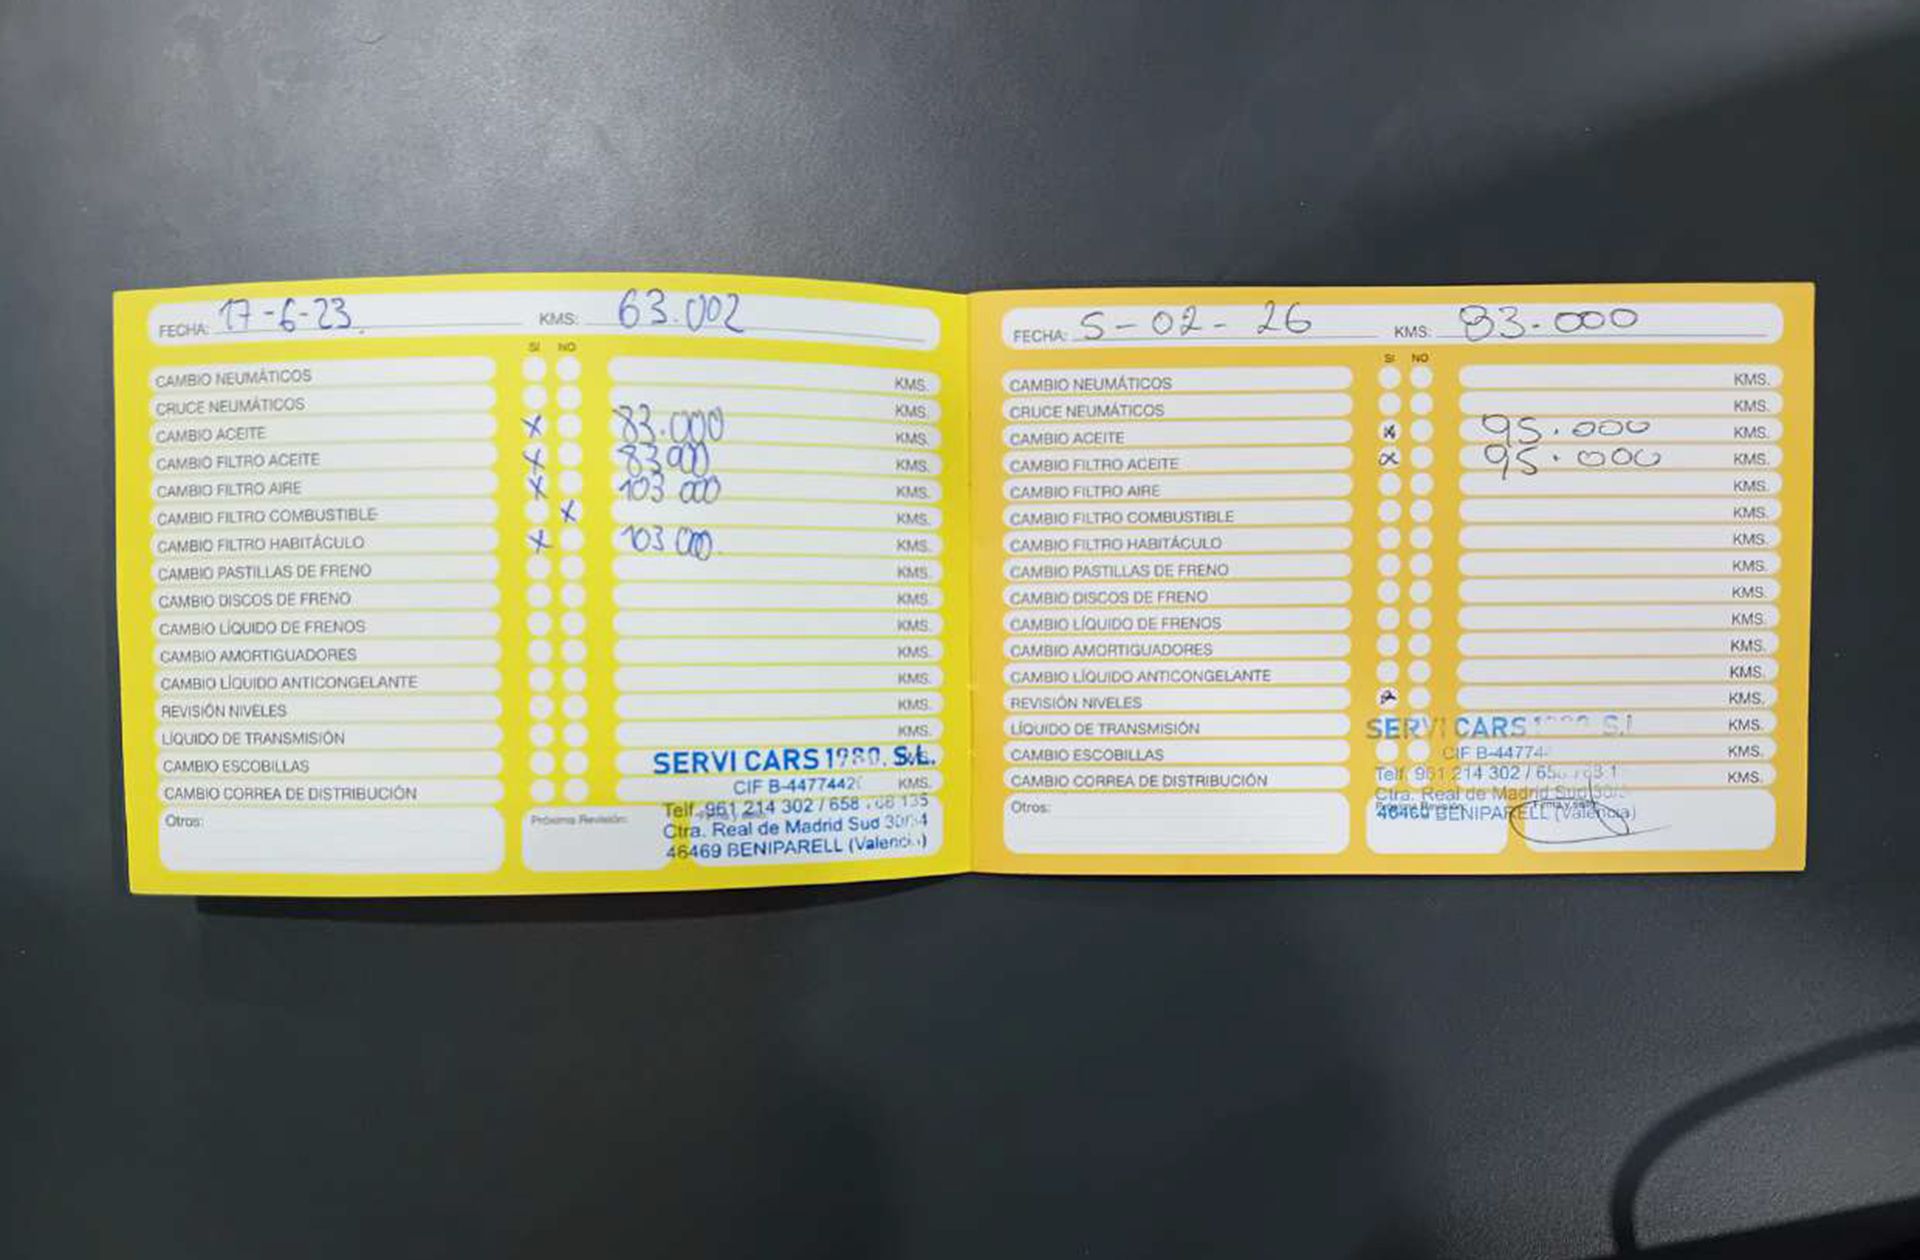 FECHA: 17-6-23. KMS: 63.002
SI NO
CAMBIO NEUMÁTICOS KMS.
CRUCE NEUMÁTICOS KMS.
CAMBIO ACEITE X 83.000 KMS.
CAMBIO FILTRO ACEITE X 83000 KMS.
CAMBIO FILTRO AIRE X 103 000 KMS.
CAMBIO FILTRO COMBUSTIBLE X KMS.
CAMBIO FILTRO HABITÁCULO X 103 000. KMS.
CAMBIO PASTILLAS DE FRENO KMS.
CAMBIO DISCOS DE FRENO KMS.
CAMBIO LÍQUIDO DE FRENOS KMS.
CAMBIO AMORTIGUADORES KMS.
CAMBIO LÍQUIDO ANTICONGELANTE KMS.
REVISIÓN NIVELES KMS.
LÍQUIDO DE TRANSMISIÓN KMS.
CAMBIO ESCOBILLAS
CAMBIO CORREA DE DISTRIBUCIÓN KMS.
Otros:
Próxima Revisión:
SERVI CARS 1980, S.L.
CIF B-4477442
Telf. 961 214 302 / 658 135
Ctra. Real de Madrid Sud
46469 BENIPARELL (Valencia)
FECHA: 5-02-26 KMS: 83.000
SI NO
CAMBIO NEUMÁTICOS KMS.
CRUCE NEUMÁTICOS KMS.
CAMBIO ACEITE X 95.000 KMS.
CAMBIO FILTRO ACEITE X 95.000 KMS.
CAMBIO FILTRO AIRE KMS.
CAMBIO FILTRO COMBUSTIBLE KMS.
CAMBIO FILTRO HABITÁCULO KMS.
CAMBIO PASTILLAS DE FRENO KMS.
CAMBIO DISCOS DE FRENO KMS.
CAMBIO LÍQUIDO DE FRENOS KMS.
CAMBIO AMORTIGUADORES KMS.
CAMBIO LÍQUIDO ANTICONGELANTE KMS.
REVISIÓN NIVELES X KMS.
LÍQUIDO DE TRANSMISIÓN KMS.
CAMBIO ESCOBILLAS KMS.
CAMBIO CORREA DE DISTRIBUCIÓN KMS.
Otros:
Próxima Revisión:
Firma y sello
SERVI CARS S.L
CIF B-44774
Telf. 961 214 302 /
Ctra. Real de Madrid Sud
46469 BENIPARELL (Valencia)